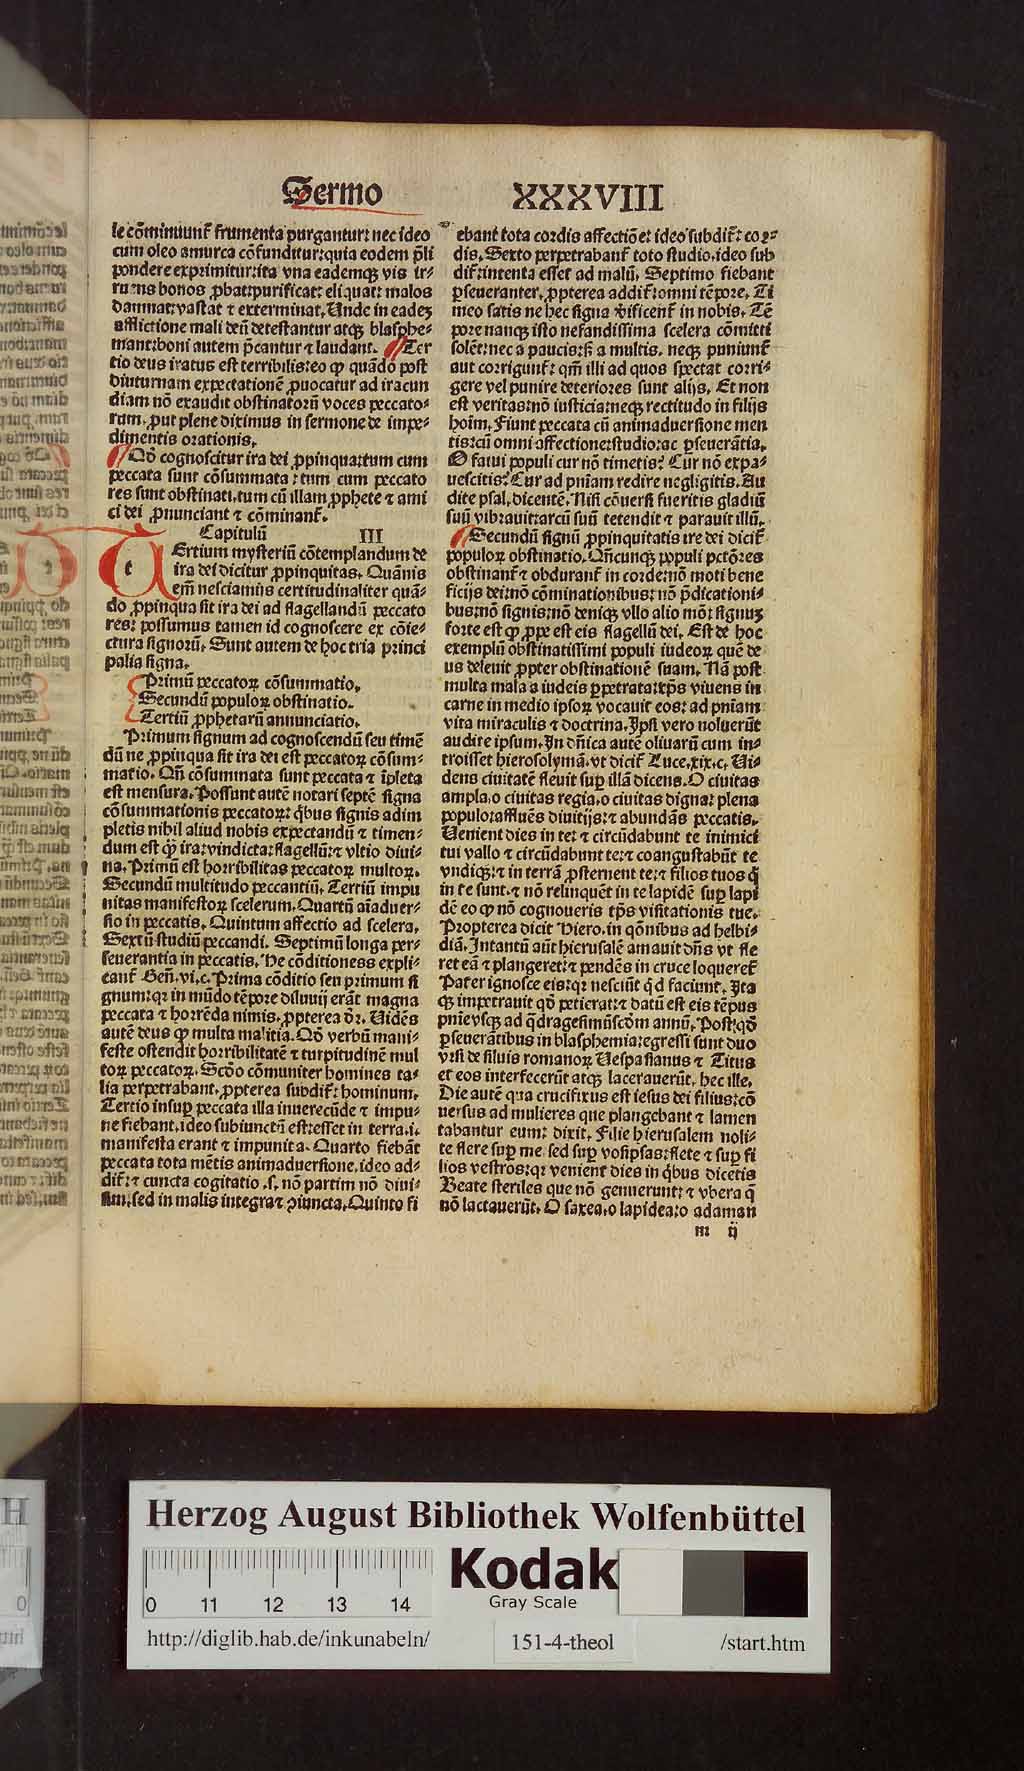 Sermo XXXVIII
le cōminuunt̄ frumenta purgantur: nec ideo
cum oleo amurca cōfunditur: quia eodem p̄li
pondere exprimitur: ita vna eademqȝ vis ir-
ruens bonos ꝓbat: purificat: eliquat: malos
damnat: vastat ⁊ exterminat. Unde in eadeȝ
afflictione mali deū detestantur atqȝ blasphe-
mant: boni autem p̄cantur ⁊ laudant. Ter
tio deus iratus est terribilis: eo ꝙ quādo post
diuturnam expectationē ꝓuocatur ad iracun
diam nō exaudit obstinatorū voces peccato-
rum, ꝓut plene diximus in sermone de impe-
dimentis orationis.
Qō cognoscitur ira dei ꝓpinqua: tum cum
peccata sunt cōsummata: tum cum peccato
res sunt obstinati, tum cū illam ꝓphete ⁊ ami
ci dei ꝓnunciant ⁊ cōminant̄.
Capitulū III
t Ertium mysteriū cōtemplandum de
ira dei dicitur ꝓpinquitas. Quāuis
em̄ nesciamus certitudinaliter quā-
do ꝓpinqua sit ira dei ad flagellandū peccato
res: possumus tamen id cognoscere ex cōie-
ctura signorū. Sunt autem de hoc tria princi
palia signa.
Primū peccatoꝝ cōsummatio.
Secundū populoꝝ obstinatio.
Tertiū ꝓphetarū annunciatio.
Primum signum ad cognoscendū seu timē
dū ne ꝓpinqua sit ira dei est peccatoꝝ cōsum-
matio. Qn̄ cōsummata sunt peccata ⁊ īpleta
est mensura. Possunt autē notari septē signa
cōsummationis peccatoꝝ: q̇bus signis adim
pletis nihil aliud nobis expectandū ⁊ timen-
dum est ꝙ̄ ira: vindicta: flagellū: ⁊ vltio diui-
na. Primū est horribilitas peccatoꝝ multoꝝ.
Secundū multitudo peccantiū. Tertiū impu
nitas manifestoꝝ scelerum. Quartū aīaduer-
sio in peccatis. Quintum affectio ad scelera.
Sextū studiū peccandi. Septimū longa per-
seuerantia in peccatis. He cōditiones expli-
cant̄ Gen̄. vi. c. Prima cōditio seu primum si
gnum: qꝛ in mūdo tēpore diluuij erāt magna
peccata ⁊ horrēda nimis, ꝓpterea dꝛ. Uidēs
autē deus ꝙ multa malitia. Qō verbū mani-
feste ostendit horribilitatē ⁊ turpitudinē mul
toꝝ peccatoꝝ. Scd̄o cōmuniter homines ta-
lia perpetrabant, ꝓpterea subdit̄: hominum.
Tertio insuꝑ peccata illa inuerecūde ⁊ impu-
ne fiebant, ideo subiunctū est: esset in terra. i.
manifesta erant ⁊ impunita. Quarto fiebāt
peccata tota mētis animaduersione, ideo ad-
dit̄: ⁊ cuncta cogitatio .s. nō partim nō diui-
sim, sed in malis integra ⁊ ꝯiuncta. Quinto fi
ebant tota cordis affectiōe: ideo subdit̄: cor-
dis. Sexto perpetrabant̄ toto studio, ideo sub
dit̄: intenta esset ad malū. Septimo fiebant
ꝑseueranter, ꝓpterea addit̄: omni tēpore. Ti
meo satis ne hec signa v̓ificent̄ in nobis. Tē
pore nanqȝ isto nefandissima scelera cōmitti
solēt: nec a paucis: sꝫ a multis. neqȝ puniunt̄
aut corrigunt̄: qm̄ illi ad quos spectat corri-
gere vel punire deteriores sunt alijs. Et non
est veritas: nō iusticia: neqȝ rectitudo in filijs
hoīm. Fiunt peccata cū animaduersione men
tis: cū omni affectione: studio: ac ꝑseuerātia.
O fatui populi cur nō timetis? Cur nō expa-
uescitis? Cur ad pn̄iam redire negligitis. Au
dite psal. dicentē. Nisi cōuersi fueritis gladiū
suū vibrauit: arcū suū tetendit ⁊ parauit illū.
Secundū signū ꝓpinquitatis ire dei dicit̄
populoꝝ obstinatio. Qn̄cunqȝ populi pctōres
obstinant̄ ⁊ obdurant̄ in corde: nō moti bene
ficijs dei: nō cōminationibus: nō p̄dicationi-
bus: nō signis: nō deniqȝ vllo alio mō: signuȝ
forte est ꝙ ꝓpe est eis flagellū dei. Est de hoc
exemplū obstinatissimi populi iudeoꝝ quē de
us deleuit ꝓpter obstinationē suam. Nā post
multa mala a iudeis ꝑpetrata: xp̄s viuens in
carne in medio ipsoꝝ vocauit eos: ad pn̄iam
vita miraculis ⁊ doctrina. Ipsi vero noluerūt
audire ipsum. In dn̄ica autē oliuarū cum in-
troisset hierosolymā. vt dicit̄ Luce. xix. c. Ui-
dens ciuitatē fleuit suꝑ illā dicens. O ciuitas
ampla, o ciuitas regia, o ciuitas digna: plena
populo: affluēs diuitijs: ⁊ abundās peccatis.
Uenient dies in te: ⁊ circūdabunt te inimici
tui vallo ⁊ circūdabunt te: ⁊ coangustabūt te
vndiqȝ: ⁊ in terrā ꝓsternent te: ⁊ filios tuos q̇
in te sunt. ⁊ nō relinquēt in te lapidē suꝑ lapi
dē eo ꝙ nō cognoueris tp̄s visitationis tue.
Propterea dicit Hiero. in qōnibus ad helbi-
diā. Intantū aūt hierusalē amauit dn̄s vt fle
ret eā ⁊ plangeret: ⁊ pendēs in cruce loqueret̄
Pater ignosce eis: qꝛ nesciūt q̇d faciunt. Ita
qȝ impetrauit qḋ petierat: ⁊ datū est eis tēpus
pn̄ie vsqȝ ad q̇dragesimūscḋm annū. Post qḋ
ꝑseuerātibus in blasphemia: egressi sunt duo
vrsi de siluis romanoꝝ Uespasianus ⁊ Titus
et eos interfecerūt atqȝ lacerauerūt. hec ille.
Die autē qua crucifixus est iesus dei filius: cō
uersus ad mulieres que plangebant ⁊ lamen
tabantur eum: dixit. Filie hierusalem noli-
te flere suꝑ me sed suꝑ vosipsas: flete ⁊ suꝑ fi
lios vestros: qꝛ venient dies in q̇bus dicetis
Beate steriles que nō genuerunt: ⁊ vbera q̄
nō lactauerūt. O saxea, o lapidea: o adaman
m ij
Herzog August Bibliothek Wolfenbüttel
Kodak
Gray Scale
0 11 12 13 14
http://diglib.hab.de/inkunabeln/ 151-4-theol /start.htm